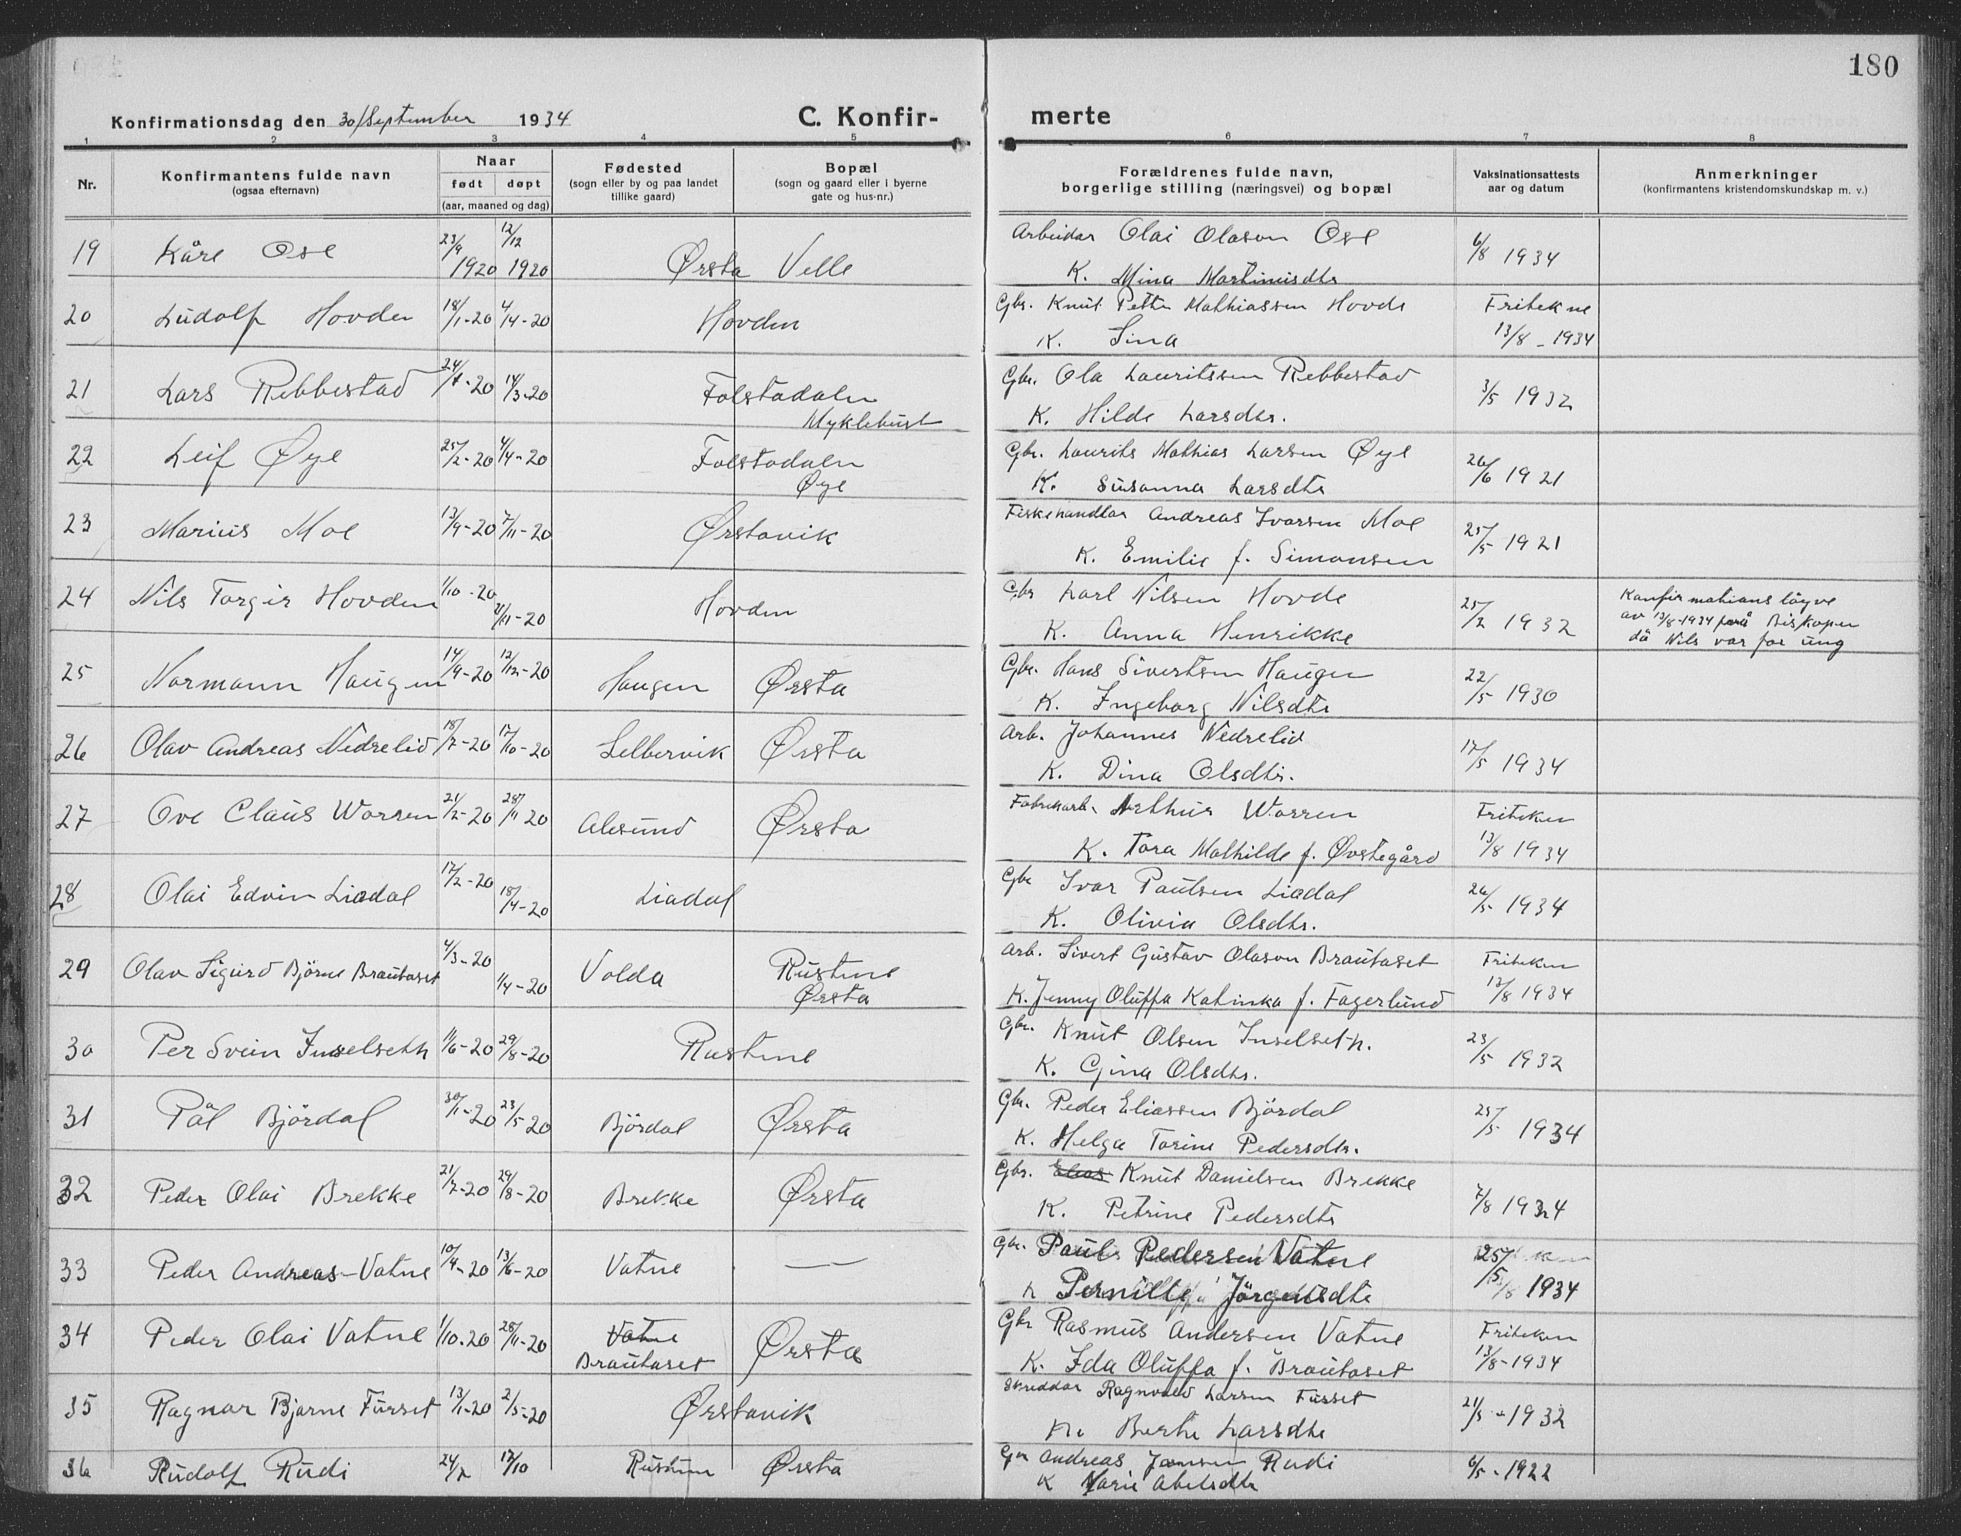 180
Konfirmationsdag den 30/September 1934 C. Konfir- merte
1 2 3 4 5 6 7 8
Nr. Konfirmantens fulde navn (ogsaa efternavn) Naar født døpt (aar, maaned og dag) Fødested (sogn eller by og paa landet tillike gaard) Bopæl (sogn og gaard eller i byerne gate og hus-nr.) Forældrenes fulde navn, borgerlige stilling (næringsvei) og bopæl Vaksinationsattests aar og datum Anmerkninger (konfirmantens kristendomskundskap m. v.)
19 Kåre Ose 23/9 1920 12/12 1920 Ørsta Velle Arbeidar Olai Olason Ose 6/8 1934
K. Mina Martinusdtr
20 Ludolf Hovden 18/1-20 4/4-20 Hovden Gbr. Knut Petter Mathiassen Hovde Friteken
K. Lina 13/8-1934
21 Lars Rebbestad 24/1-20 14/3-20 Folstadalen Gbr. Ola Lauritssen Rebbestad 3/5 1932
Myklebust K. Hilde Larsdtr.
22 Leif Øye 25/2-20 4/4-20 Folstadalen Gbr. Laurits Mathias Larsen Øye 26/6 1921
Øye K. Susanna Larsdtr
23 Marius Moe 13/9-20 7/11-20 Ørstavik Fiskehandlar Andreas Ivarsen Moe 25/5 1921
K. Emilie f. Simonsen
24 Nils Torgir Hovden 1/10-20 21/11-20 Hovden Gbr Karl Nilsen Hovde 25/2 1932 Konfirmations løyve
K. Anna Henrikke av 13/8-1934 frå Biskopen
då Nils var for ung
25 Normann Haugen 14/9-20 12/12-20 Haugen Ørsta Gbr. Hans Sivertsen Haugen 22/5 1930
K. Ingeborg Nilsdtr
26 Olav Andreas Nedrelid 18/7-20 17/10-20 Selbervik Ørsta Arb. Johannes Nedrelid 17/5 1934
K. Dina Olsdtr.
27 Ove Claus Worren 21/2-20 28/11 20 Ålesund Ørsta Fabrikarb. Arthur Worren Friteken
K. Tora Mathilde f. Øvstegård 13/8 1934
28 Olai Edvin Liadal 17/2-20 18/4-20 Liadal Gbr Ivar Paulsen Liadal 26/5 1934
K. Olivia Olsdtr.
29 Olav Sigurd Bjørne Brautaset 4/3-20 1/4-20 Volda Rustene Arb. Sivert Gustav Olason Brautaset Friteken
Ørsta K. Jenny Oluffa Katinka f. Fagerlund 13/8 1934
30 Per Svein Inselseth 1/6-20 29/8-20 Rustene Gbr. Knut Olsen Inselseth. 23/5 1932
K. Gina Olsdtr.
31 Pål Bjørdal 30/1-20 23/5-20 Bjørdal Ørsta Gbr. Peder Eliassen Bjørdal 25/5 1934
K. Helga Torine Pedersdtr.
32 Peder Olai Brekke 21/7-20 29/8-20 Brekke Ørsta Gbr. Elias Knut Danielsen Brekke 7/8 1934
K. Petrine Pedersdtr
33 Peder Andreas Vatne 10/4-20 13/6-20 Vatne — Gbr. Paul Pedersen Vatne 25/5 1934
K Pernille Jørgensdtr
34 Peder Olai Vatne 1/10-20 28/11-20 Vatne Ørsta Gbr Rasmus Andersen Vatne Friteken
Brautaset K. Ida Oluffa f. Brautaset 13/8-1934
35 Ragnar Bjarne Fürset 13/1-20 2/5-20 Ørstavik Skreddar Ragnvald Larsen Fürset 21/5-1932
K. Berte Larsdtr
36 Rudolf Rudi 24/7 17/10 Rustene Ørsta Gbr Andreas Jonsen Rudi 6/5-1922
K Marie Abelsdtr